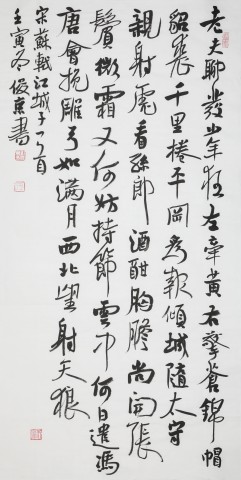 老夫聊發少年狂左牽黃右擎蒼錦帽
貂裘千里捲平岡為報傾城隨太守
親射虎看孫郎酒酣胸膽尚開張
鬢微霜又何妨持節雲中何日遣馮
唐會挽雕弓如滿月西北望射天狼
宋蘇軾江城子一首
壬寅冬俊京書